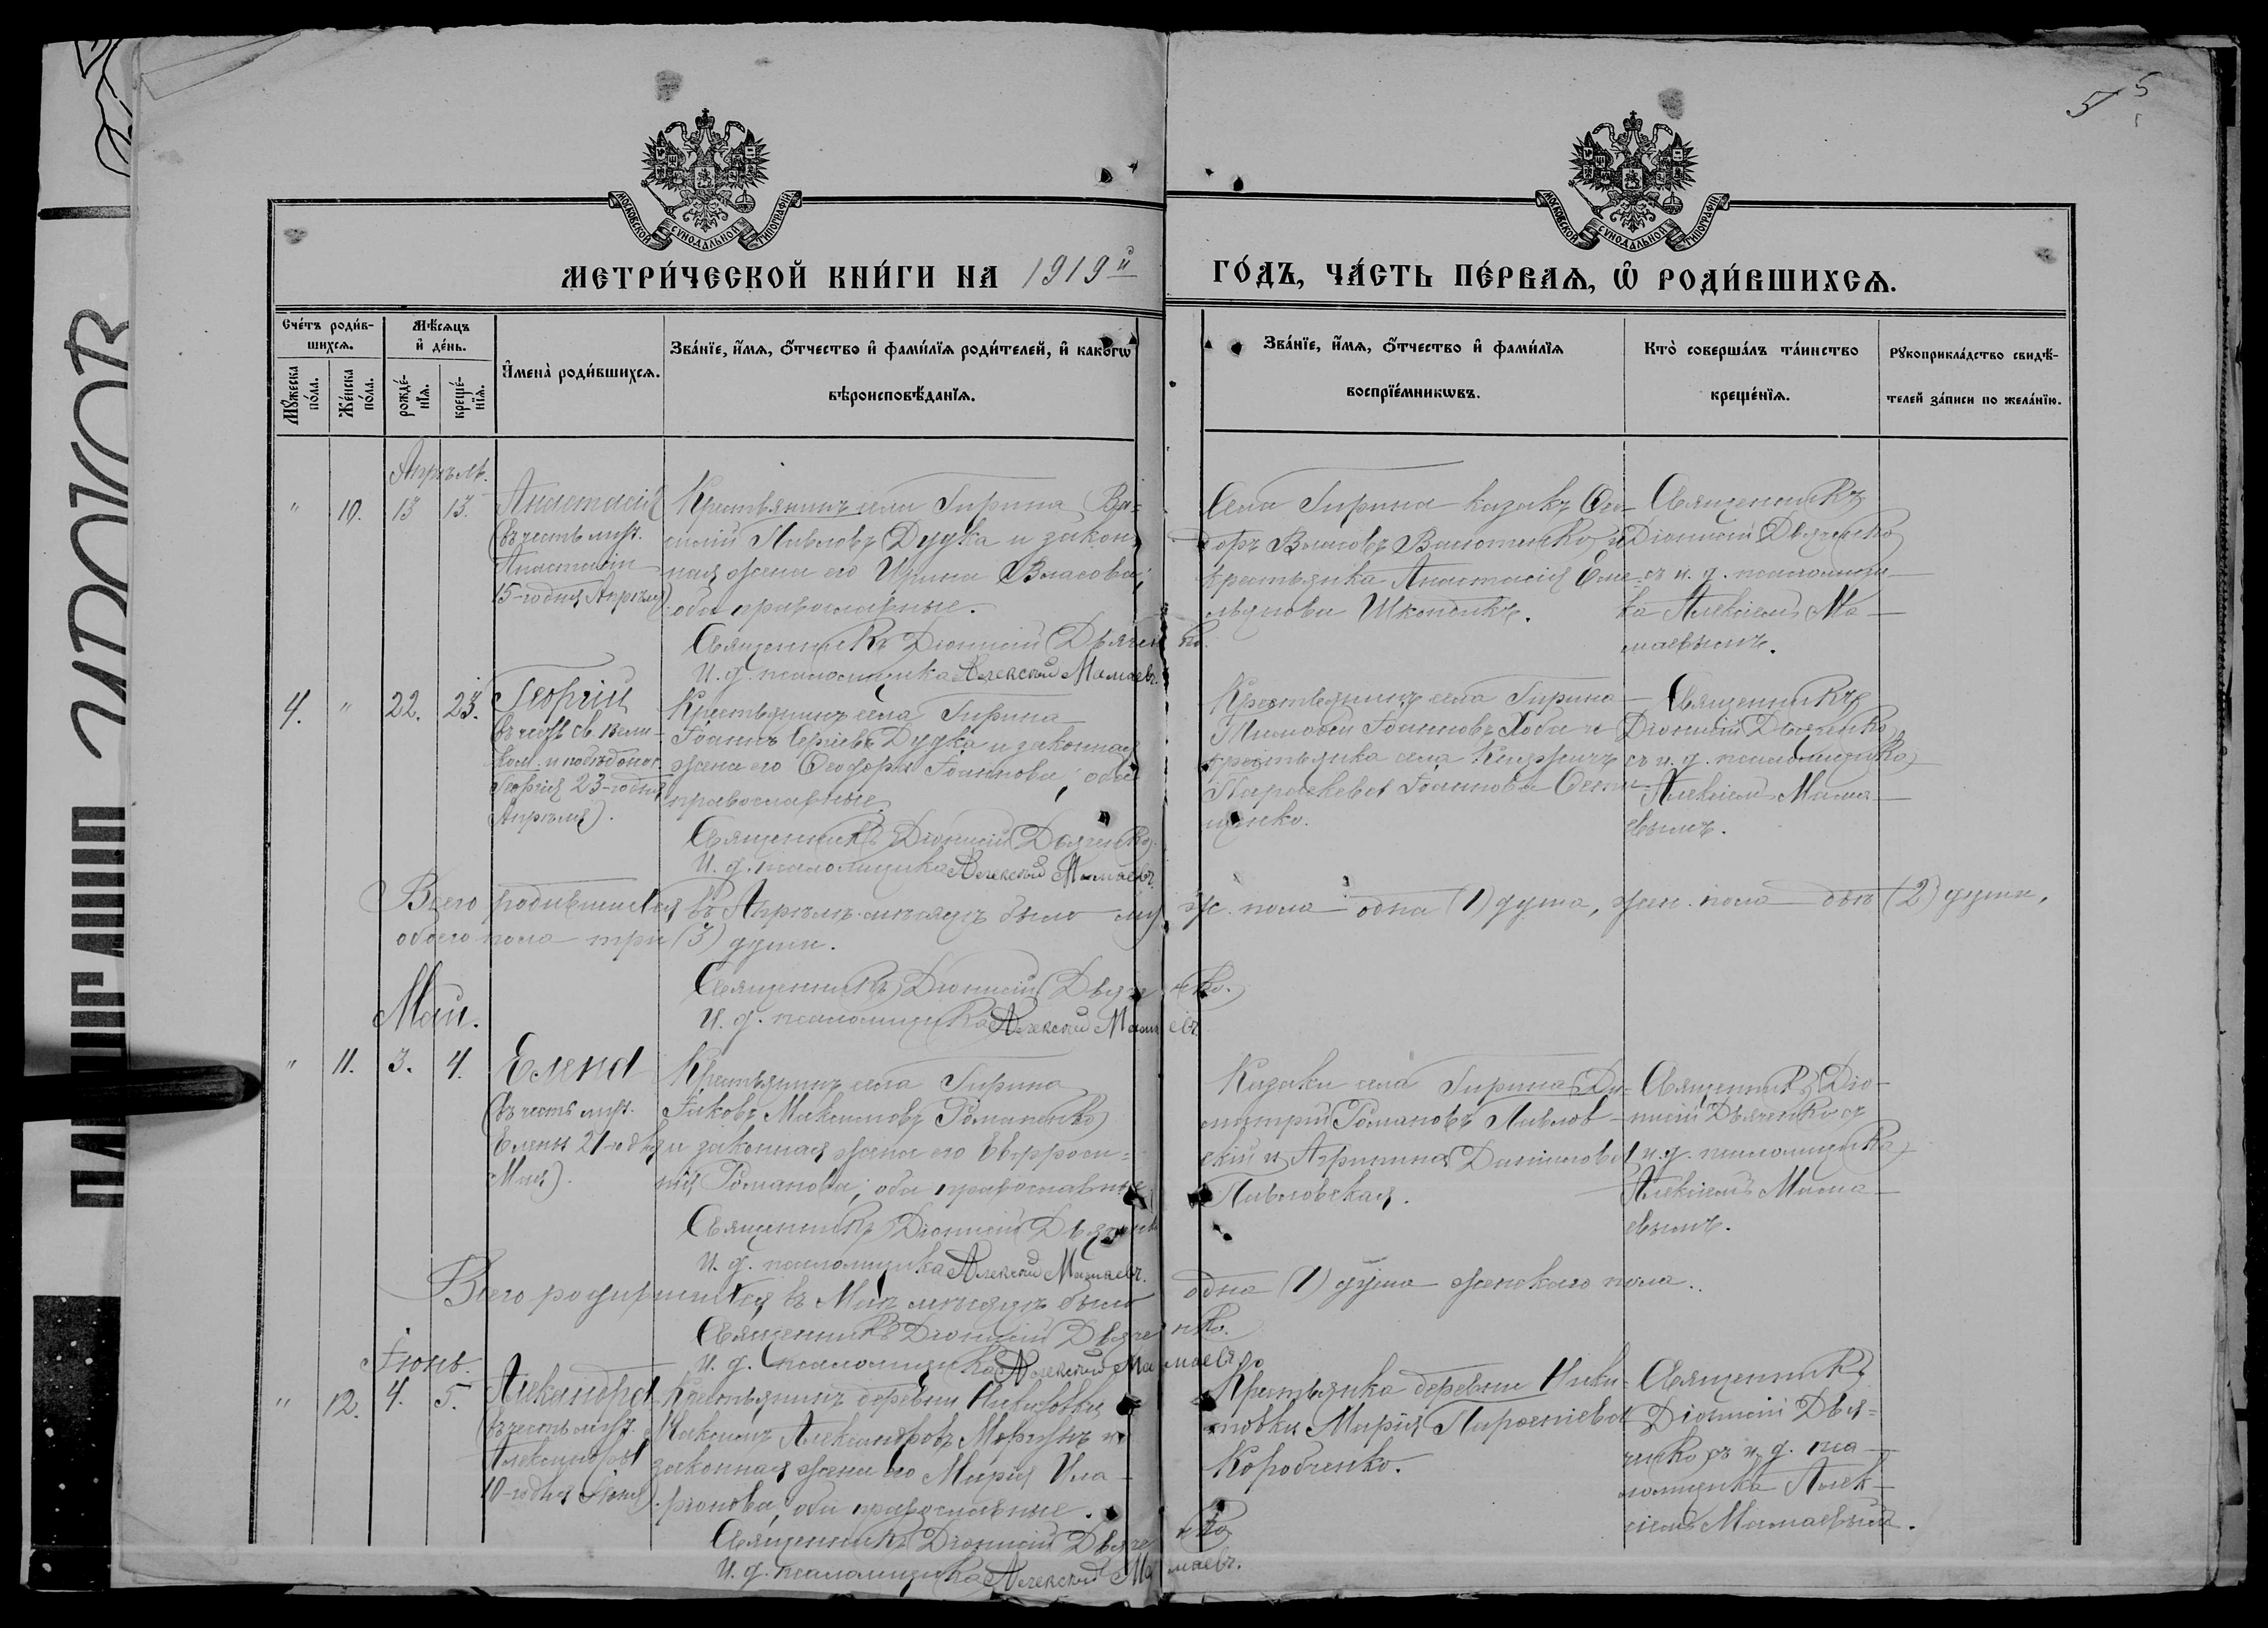 5
5
МОСКОВСКОЙ СѴНОДАЛЬНОЙ ТИПОГРАФІИ
МОСКОВСКОЙ СѴНОДАЛЬНОЙ ТИПОГРАФІИ
МЕТРИ́ЧЕСКОЙ КНИ́ГИ НА 1919й
ГО́ДЪ, ЧА́СТЬ ПЕ́РВАѦ, Ѡ РОДИ́ВШИХСѦ.
Сче́тъ роди́в-
шихсѧ.
Мꙋ́жеска по́ла.
Же́нска по́ла.
Мѣ́сѧцъ
и҆ де́нь.
рожде́-
нїѧ.
креще́-
нїѧ.
И҆мена̀ роди́вшихсѧ.
Зва́нїе, и҆́мѧ, ѻ҆́тчество и҆ фами́лїѧ роди́телей, и҆ какогѡ
вѣроисповѣ́данїѧ.
Зва́нїе, и҆́мѧ, ѻ҆́тчество и҆ фами́лїѧ
воспрїе́мникѡвъ.
Кто̀ соверша́лъ та́инство
креще́нїѧ.
Рꙋкоприкла́дство свидѣ́-
телей за́писи по жела́нїю.
Апрѣль.
" 10. 13 13.
Анастасія
(въ честь муч.
Анастасіи
15-го дня Апрѣля)
Крестьянинъ села Гирина Ва-
силій Павловъ Дудка и закон-
ная жена его Ирина Власова;
оба православные.
Священникъ Діонисій Дьяченко.
И. д. псаломщика Алексѣй Мамаевъ.
Села Гирина казакъ Ѳео-
доръ Власовъ Васютенко и
крестьянка Анастасія Еме-
льянова
Священникъ
Діонисій Дьяченко
съ и. д. псаломщи-
ка Алексіемъ Ма-
маевымъ.
4. " 22. 23.
Георгій
въ честь св. вели-
ком. и побѣдонос.
Георгія 23-го дня
Апрѣля).
Крестьянинъ села Гирина
Іоаннъ Сергіевъ Дудка и законная
жена его Ѳеодора Іоаннова; оба
православные.
Священникъ Діонисій Дьяченко.
И. д. псаломщика Алексѣй Мамаевъ.
Крестьянинъ села Гирина
Тимоѳей Іоанновъ и
крестьянка села
Параскева Іоаннова
Священникъ
Діонисій Дьяченко
съ и. д. псаломщика
Алексіемъ Мама-
евымъ.
Всего родившихся въ Апрѣлѣ мѣсяцѣ было муж. пола одна (1) душа, жен. пола двѣ (2) души,
обоего пола три (3) души.
Священникъ Діонисій Дьяченко.
И. д. псаломщика Алексѣй Мамаевъ
Май.
" 11. 3. 4.
Елена
(въ честь муч.
Елены 21-го дня
Мая).
Крестьянинъ села Гирина
Іаковъ Максимовъ Романенко
и законная жена его Евфроси-
нія Романова; оба православные.
Священникъ Діонисій Дьяченко
И. д. псаломщика Алексѣй Мамаевъ.
Казаки села Гирина Ди-
митрій Романовъ Павлов-
скій и Агрипина Даниилова
Павловская.
Священникъ Діо-
нисій Дьяченко съ
и. д. псаломщика
Алексіемъ Мама-
евымъ.
Всего родившихся въ Маѣ мѣсяцѣ было одна (1) душа женскаго пола.
Священникъ Діонисій Дьяченко.
И. д. псаломщика Алексѣй Мамаевъ.
Іюнь.
" 12. 4. 5.
Александра
(въ честь муч.
Александры
10-го дня Іюня).
Крестьянинъ деревни
Максимъ Александровъ и
законная жена его Марія Ила-
ріонова, оба православные.
Священникъ Діонисій Дьяченко
И. д. псаломщика Алексѣй Мамаевъ.
Крестьянка деревни
Марія Парѳеніева
Коробченко.
Священникъ
Діонисій Дья-
ченко съ и. д. пса-
ломщика Алек-
сіемъ Мамаевымъ.